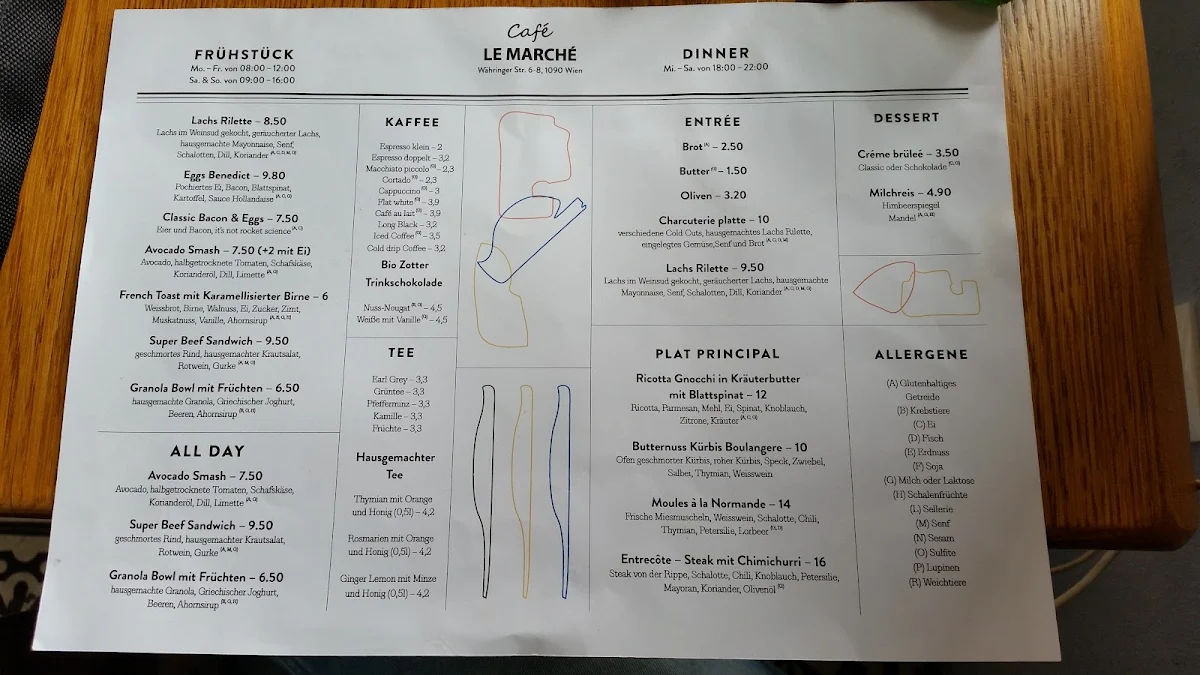 Café
LE MARCHÉ
Währinger Str. 6-8, 1090 Wien
FRÜHSTÜCK
Mo. – Fr. von 08:00 – 12:00
Sa. & So. von 09:00 – 16:00
Lachs Rilette – 8.50
Lachs im Weinsud gekocht, geräucherter Lachs,
hausgemachte Mayonnaise, Senf,
Schalotten, Dill, Koriander
Eggs Benedict – 9.80
Pochiertes Ei, Bacon, Blattspinat,
Kartoffel, Sauce Hollandaise
Classic Bacon & Eggs – 7.50
Eier und Bacon, it's not rocket science
Avocado Smash – 7.50 (+2 mit Ei)
Avocado, halbgetrocknete Tomaten, Schafskäse,
Korianderöl, Dill, Limette
French Toast mit Karamellisierter Birne – 6
Weissbrot, Birne, Walnuss, Ei, Zucker, Zimt,
Muskatnuss, Vanille, Ahornsirup
Super Beef Sandwich – 9.50
geschmortes Rind, hausgemachter Krautsalat,
Rotwein, Gurke
Granola Bowl mit Früchten – 6.50
hausgemachte Granola, Griechischer Joghurt,
Beeren, Ahornsirup
ALL DAY
Avocado Smash – 7.50
Avocado, halbgetrocknete Tomaten, Schafskäse,
Korianderöl, Dill, Limette
Super Beef Sandwich – 9.50
geschmortes Rind, hausgemachter Krautsalat,
Rotwein, Gurke
Granola Bowl mit Früchten – 6.50
hausgemachte Granola, Griechischer Joghurt,
Beeren, Ahornsirup
KAFFEE
Espresso klein – 2
Espresso doppelt – 3,2
Macchiato piccolo (G) – 2,3
Cortado (G) – 2,3
Cappuccino (G) – 3
Flat white (G) – 3,9
Café au lait (G) – 3,9
Long Black – 3,2
Iced Coffee (G) – 3,5
Cold drip Coffee – 3,2
Bio Zotter
Trinkschokolade
Nuss-Nougat – 4,5
Weiße mit Vanille (G) – 4,5
TEE
Earl Grey – 3,3
Grüntee – 3,3
Pfefferminz – 3,3
Kamille – 3,3
Früchte – 3,3
Hausgemachter
Tee
Thymian mit Orange
und Honig (0,5l) – 4,2
Rosmarien mit Orange
und Honig (0,5l) – 4,2
Ginger Lemon mit Minze
und Honig (0,5l) – 4,2
DINNER
Mi. – Sa. von 18:00 – 22:00
ENTRÉE
Brot (A) – 2.50
Butter (G) – 1.50
Oliven – 3.20
Charcuterie platte – 10
verschiedene Cold Cuts, hausgemachtes Lachs Rilette,
eingelegtes Gemüse,Senf und Brot
Lachs Rilette – 9.50
Lachs im Weinsud gekocht, geräucherter Lachs, hausgemachte
Mayonnaise, Senf, Schalotten, Dill, Koriander
PLAT PRINCIPAL
Ricotta Gnocchi in Kräuterbutter
mit Blattspinat – 12
Ricotta, Parmesan, Mehl, Ei, Spinat, Knoblauch,
Zitrone, Kräuter
Butternuss Kürbis Boulangere – 10
Ofen geschmorter Kürbis, roher Kürbis, Speck, Zwiebel,
Salbei, Thymian, Weisswein
Moules à la Normande – 14
Frische Miesmuscheln, Weisswein, Schalotte, Chili,
Thymian, Petersilie, Lorbeer
Entrecôte – Steak mit Chimichurri – 16
Steak von der Rippe, Schalotte, Chili, Knoblauch, Petersilie,
Mayoran, Koriander, Olivenöl
DESSERT
Créme brüleé – 3.50
Classic oder Schokolade
Milchreis – 4.90
Himbeerspiegel
Mandel
ALLERGENE
(A) Glutenhaltiges
Getreide
(B) Krebstiere
(C) Ei
(D) Fisch
(E) Erdnuss
(F) Soja
(G) Milch oder Laktose
(H) Schalenfrüchte
(L) Sellerie
(M) Senf
(N) Sesam
(O) Sulfite
(P) Lupinen
(R) Weichtiere